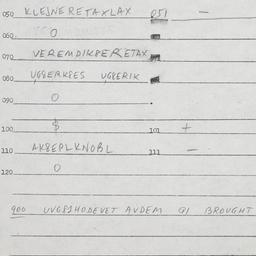 050 KLEJNERETAXLAX 051 —
060 O
070 VEREMDIKBERETAX
080 UGBERKBES UGBERIK
090 O
100 $ 101 +
110 AKBEPLKNOBL 111 —
120 O
900 AVDEM BROUGHT